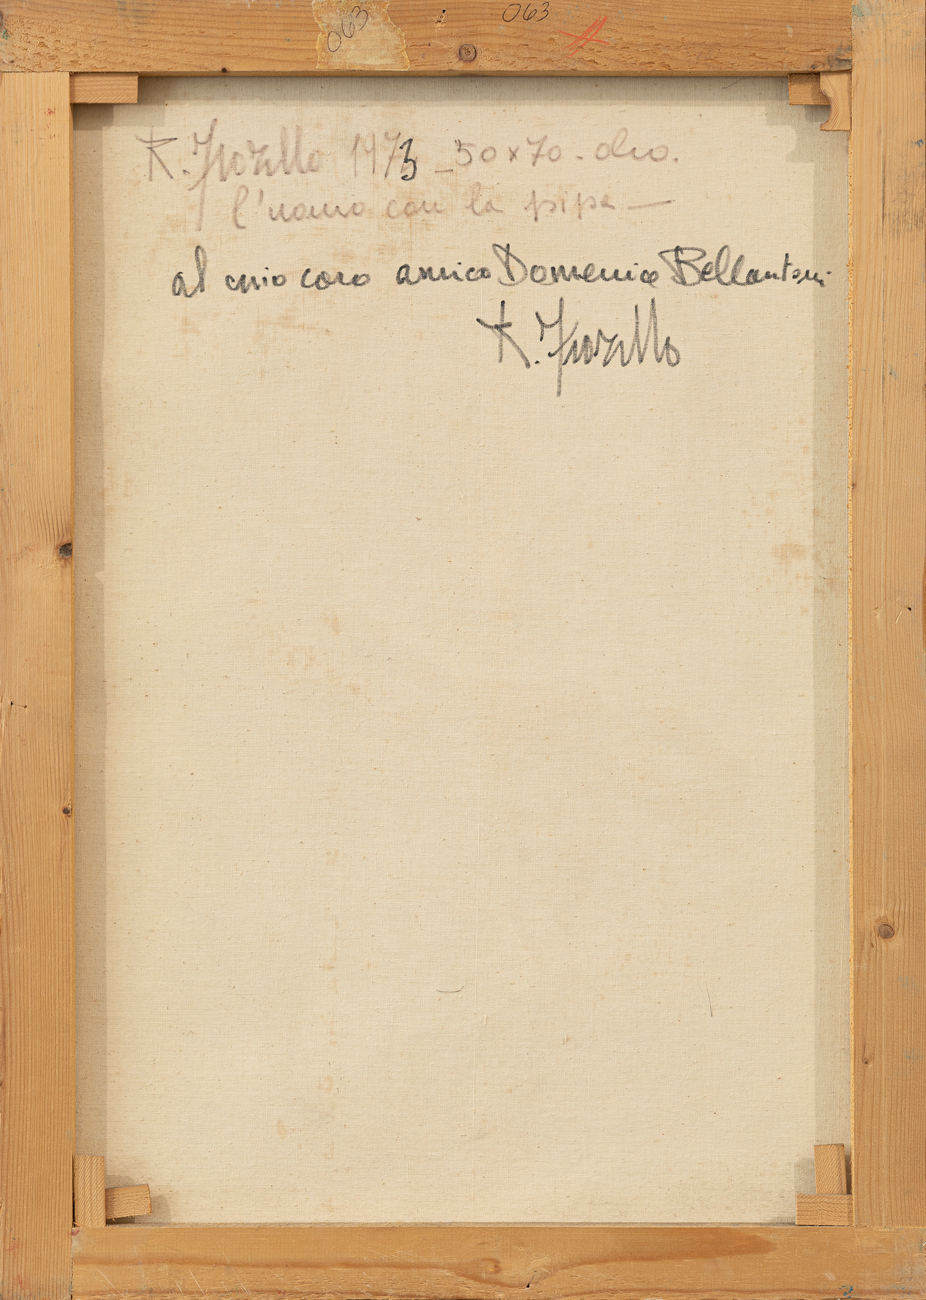 063
063
R. Fiorillo 1973 - 50x70 - olio.
l'uomo con la pipa —
al mio caro amico Domenico Bellantoni
R. Fiorillo